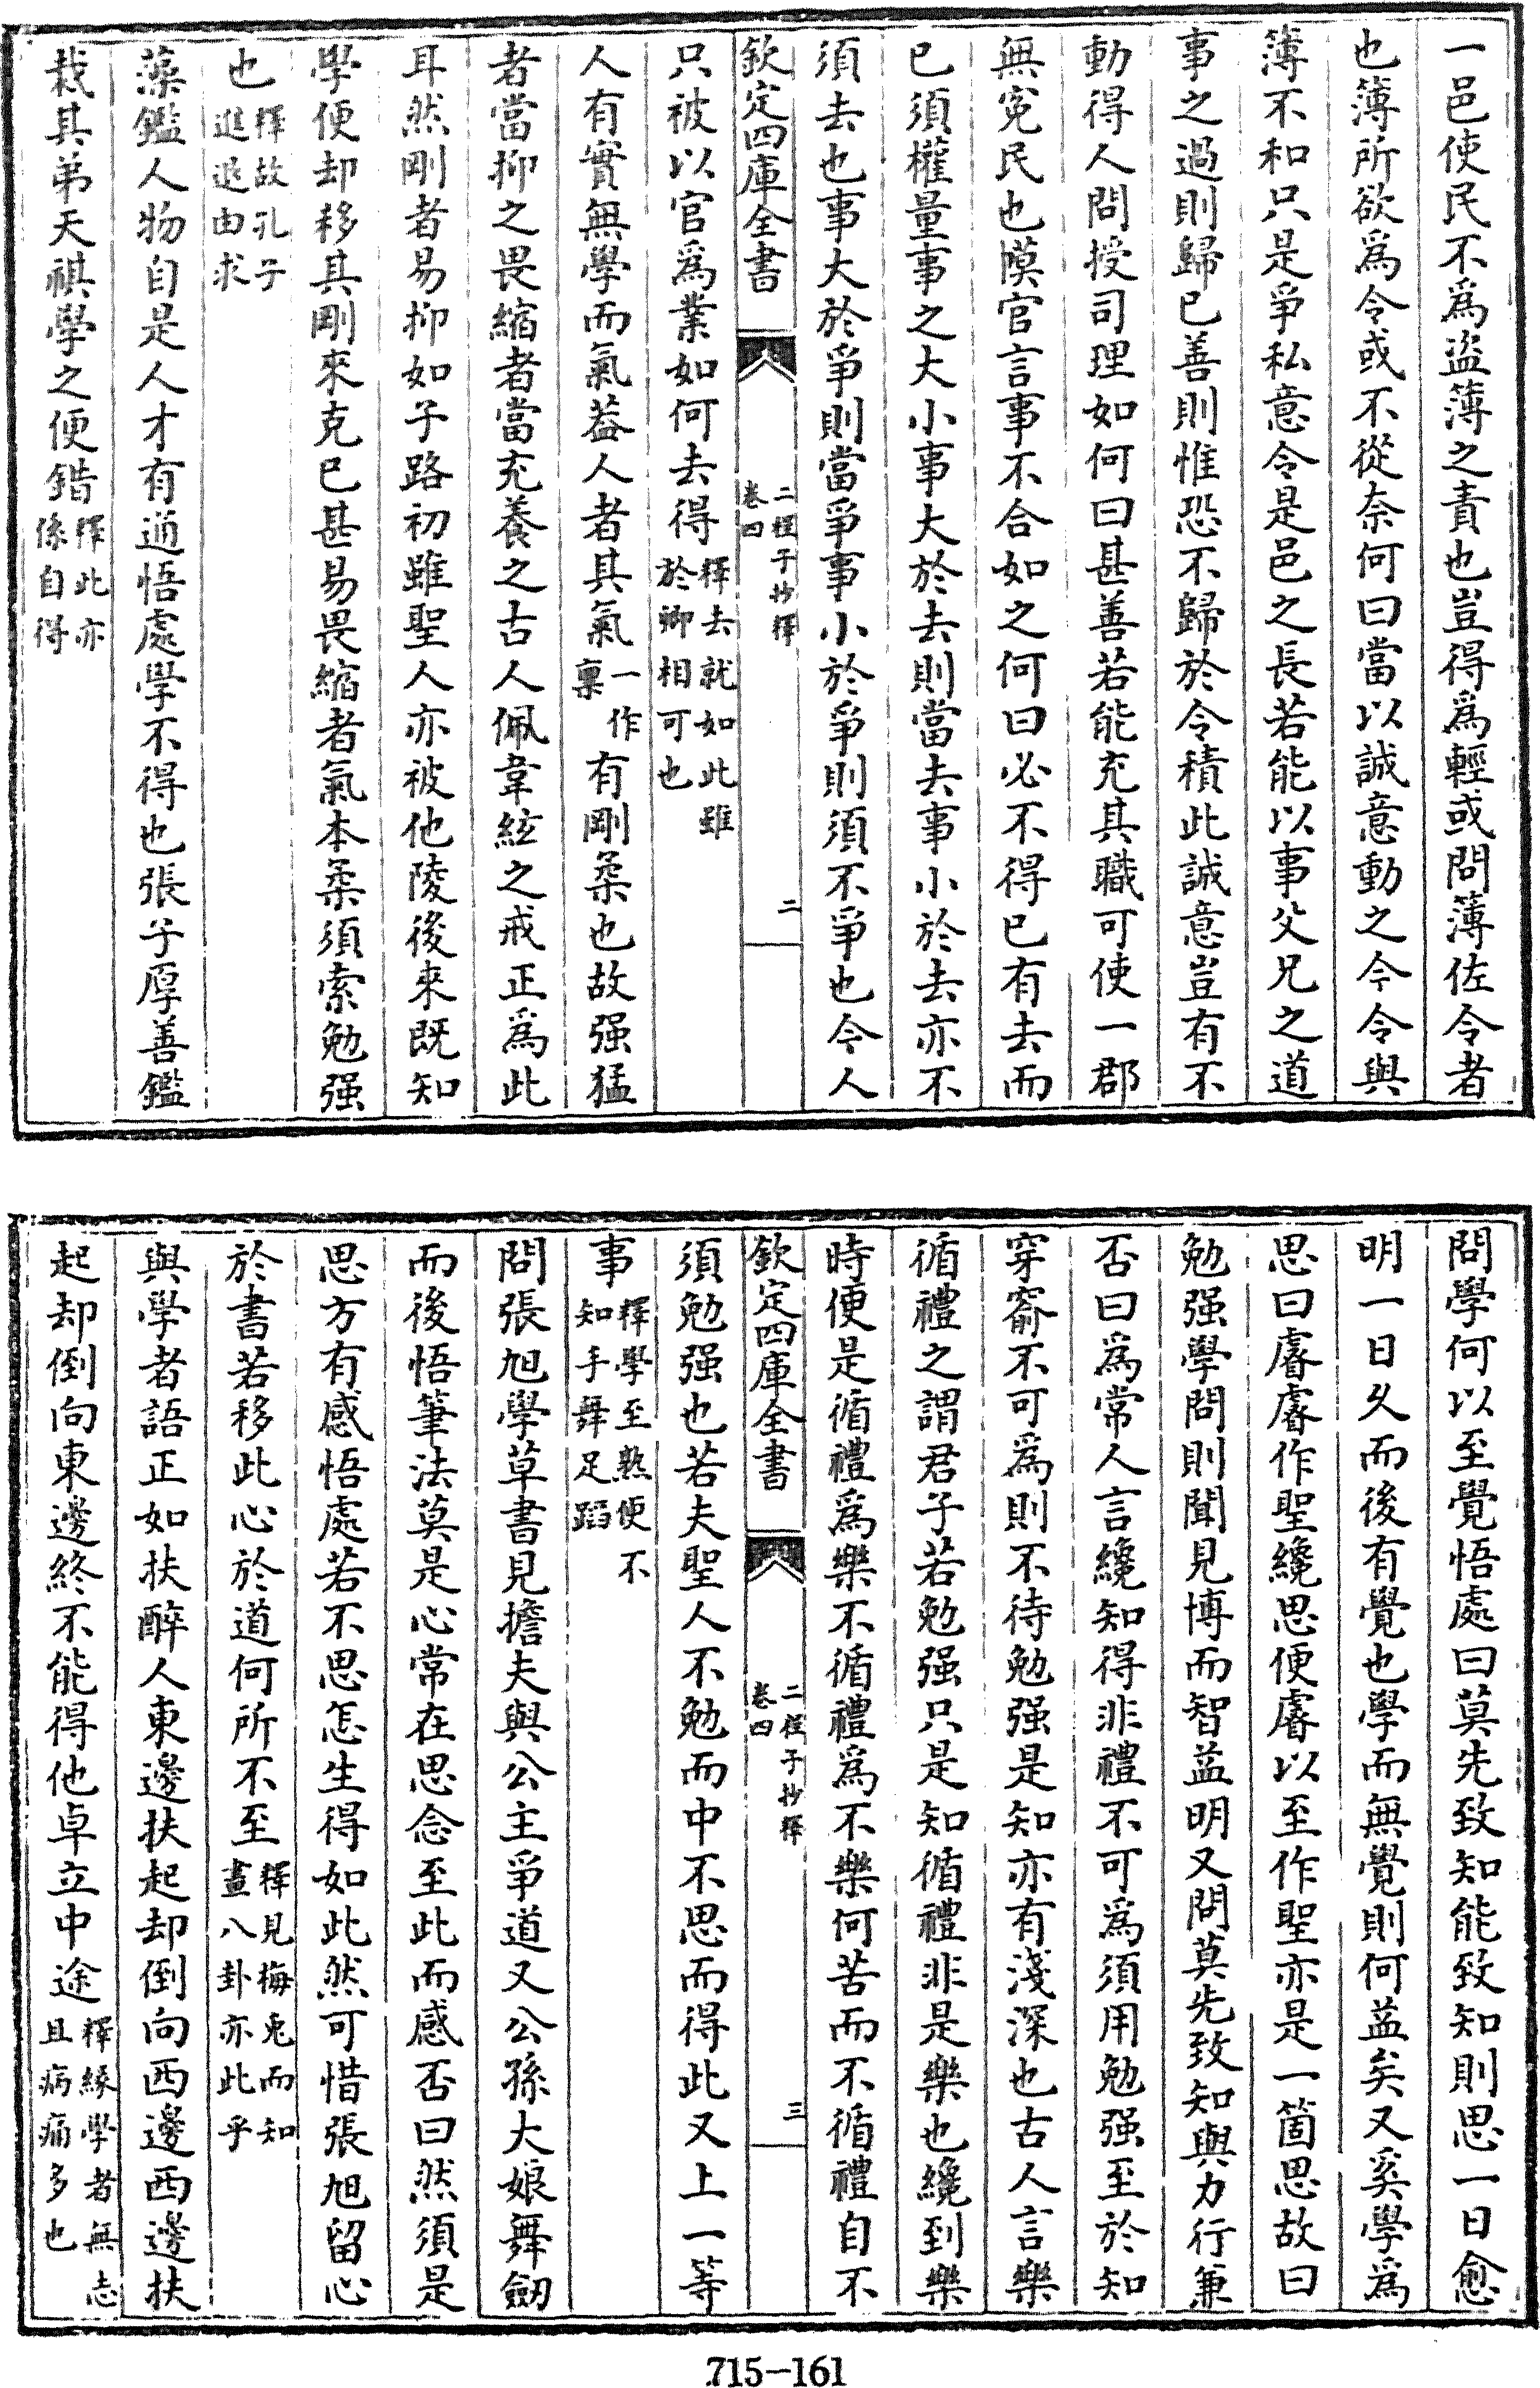 一邑使民不為盜簿之責也豈得為輕或問簿佐令者
也簿所欲為令或不從奈何曰當以誠意動之今令與
簿不和只是爭私意令是邑之長若能以事父兄之道
事之過則歸已善則惟恐不歸於令積此誠意豈有不
動得人問授司理如何曰甚善若能充其職可使一郡
無寃民也幙官言事不合如之何曰必不得已有去而
已須權量事之大小事大於去則當去事小於去亦不
須去也事大於爭則當爭事小於爭則須不爭也今人
欽定四庫全書 二程子抄釋 卷四 二
只被以官為業如何去得釋去就如此雖於卿相可也
人有實無學而氣葢人者其氣一作稟有剛柔也故强猛
者當抑之畏縮者當充養之古人佩韋絃之戒正為此
耳然剛者易抑如子路初雖聖人亦被他陵後來既知
學便却移其剛來克已甚易畏縮者氣本柔須索勉强
也釋故孔子進退由求
藻鑑人物自是人才有通悟處學不得也張子厚善鑑
裁其弟天祺學之便錯釋此亦係自得
問學何以至覺悟處曰莫先致知能致知則思一日愈
明一日久而後有覺也學而無覺則何益矣又奚學為
思曰睿睿作聖纔思便睿以至作聖亦是一箇思故曰
勉强學問則聞見博而智益明又問莫先致知與力行兼
否曰為常人言纔知得非禮不可為須用勉强至於知
穿窬不可為則不待勉强是知亦有淺深也古人言樂
循禮之謂君子若勉强只是知循禮非是樂也纔到樂
時便是循禮為樂不循禮為不樂何苦而不循禮自不
欽定四庫全書 二程子抄釋 卷四 三
須勉强也若夫聖人不勉而中不思而得此又上一等
事釋學至熟便不知手舞足蹈
問張旭學草書見擔夫與公主爭道又公孫大娘舞劒
而後悟筆法莫是心常在思念至此而感否曰然須是
思方有感悟處若不思怎生得如此然可惜張旭留心
於書若移此心於道何所不至釋見梅兎而知畫八卦亦此乎
與學者語正如扶醉人東邊扶起却倒向西邊西邊扶
起却倒向東邊終不能得他卓立中途釋緣學者無志且病痛多也
715-161